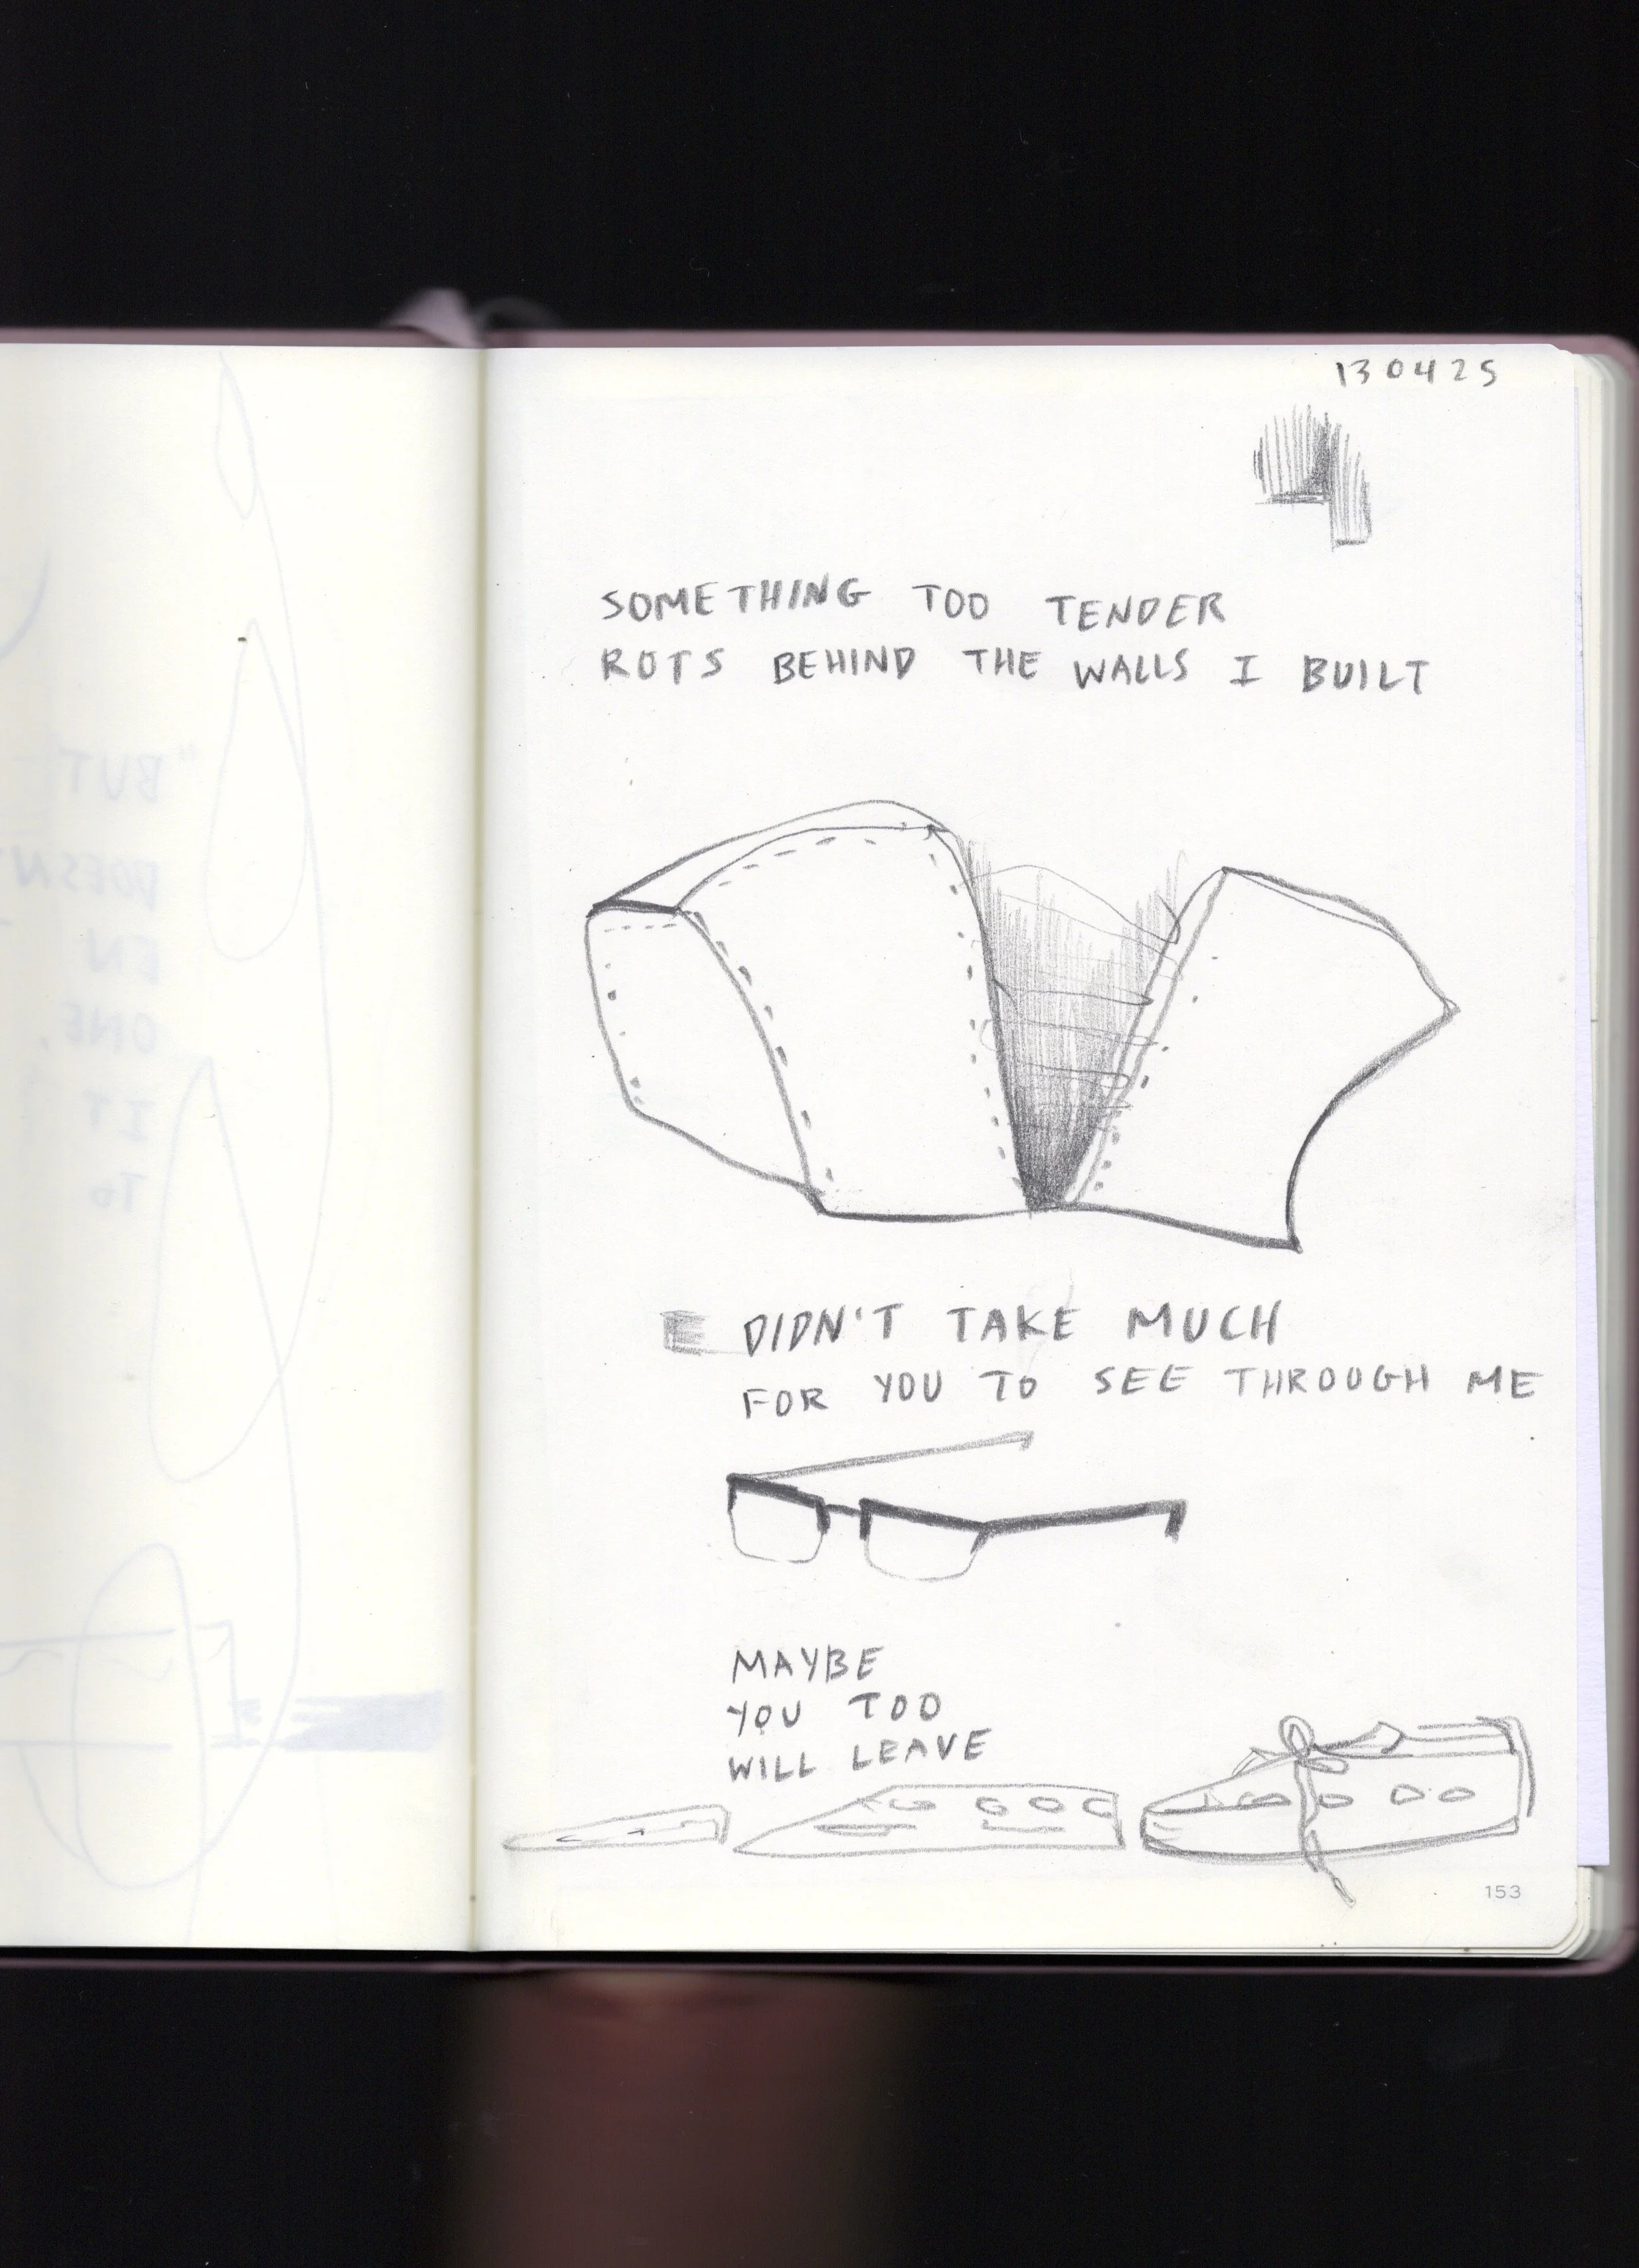 130425
SOMETHING TOO TENDER
ROTS BEHIND THE WALLS I BUILT
DIDN'T TAKE MUCH
FOR YOU TO SEE THROUGH ME
MAYBE
YOU TOO
WILL LEAVE
153
"BUT
DOESN'
EN
ONE,
IT
TO